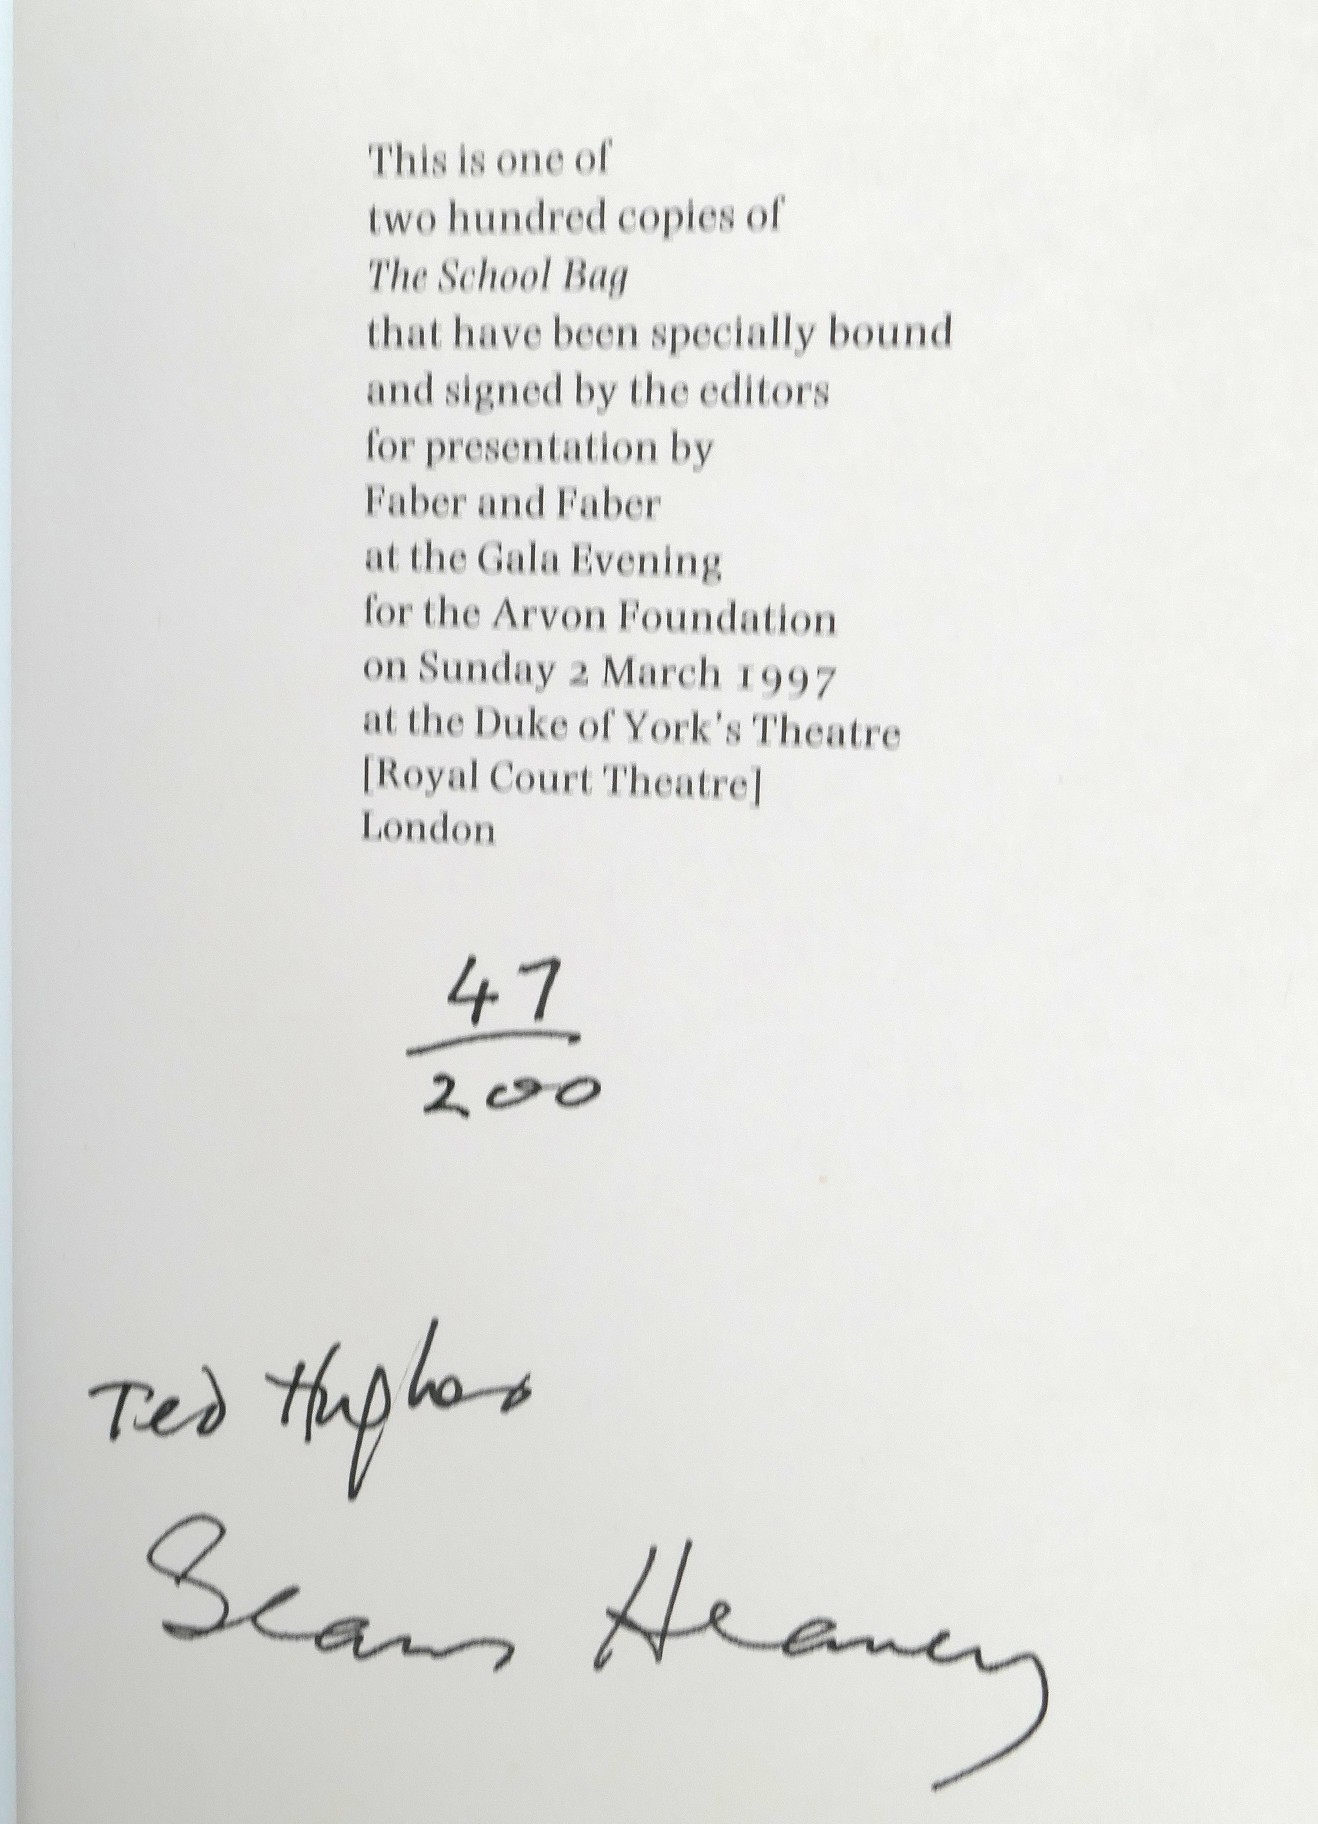 This is one of
two hundred copies of
The School Bag
that have been specially bound
and signed by the editors
for presentation by
Faber and Faber
at the Gala Evening
for the Arvon Foundation
on Sunday 2 March 1997
at the Duke of York's Theatre
[Royal Court Theatre]
London
47
200
Ted Hughes
Seamus Heaney